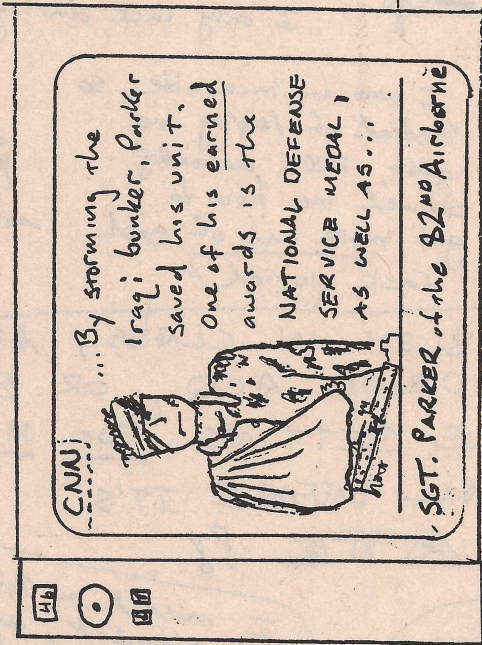 CNN
...By storming the
Iraqi bunker, Parker
saved his unit.
One of his earned
awards is the
NATIONAL DEFENSE
SERVICE MEDAL,
AS WELL AS...
SGT. PARKER of the 82ND Airborne